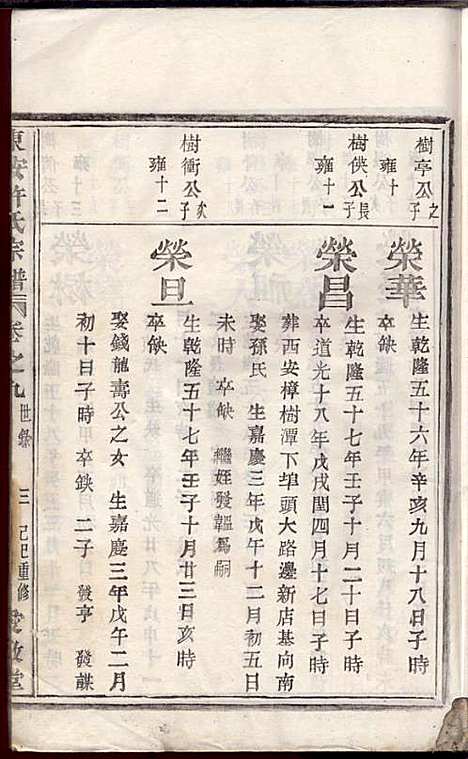 樹亭公之
雍十
榮華
生乾隆五十六年辛亥九月十八日子時
卒缺
樹供公長子
雍十一
榮昌
生乾隆五十七年壬子十月二十日子時
卒道光十八年戊戌閏四月十七日子時
葬西安樟樹潭下埠頭大路邊新店基向南
娶孫氏 生嘉慶三年戊午十二月初五日
未時 卒缺 繼姪發韞為嗣
樹衝公次子
雍十二
榮旦
生乾隆五十七年壬子十月廿三日亥時
卒缺
娶錢龍壽公之女 生嘉慶三年戊午二月
初十日子時 卒缺 二子 發亨 發謀
東安許氏宗譜 卷之九 世錄 三 己巳重修 愛敬堂